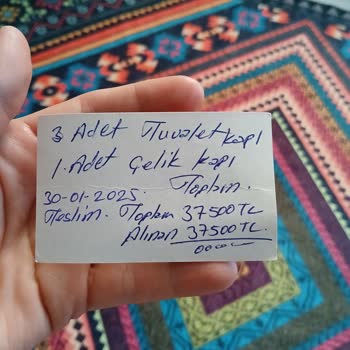 3 Adet Tuvalet kapı
1. Adet Çelik kapı
30-01-2025. Toplam.
Teslim. Toplam 37500TL
Alınan 37500TL.
00000